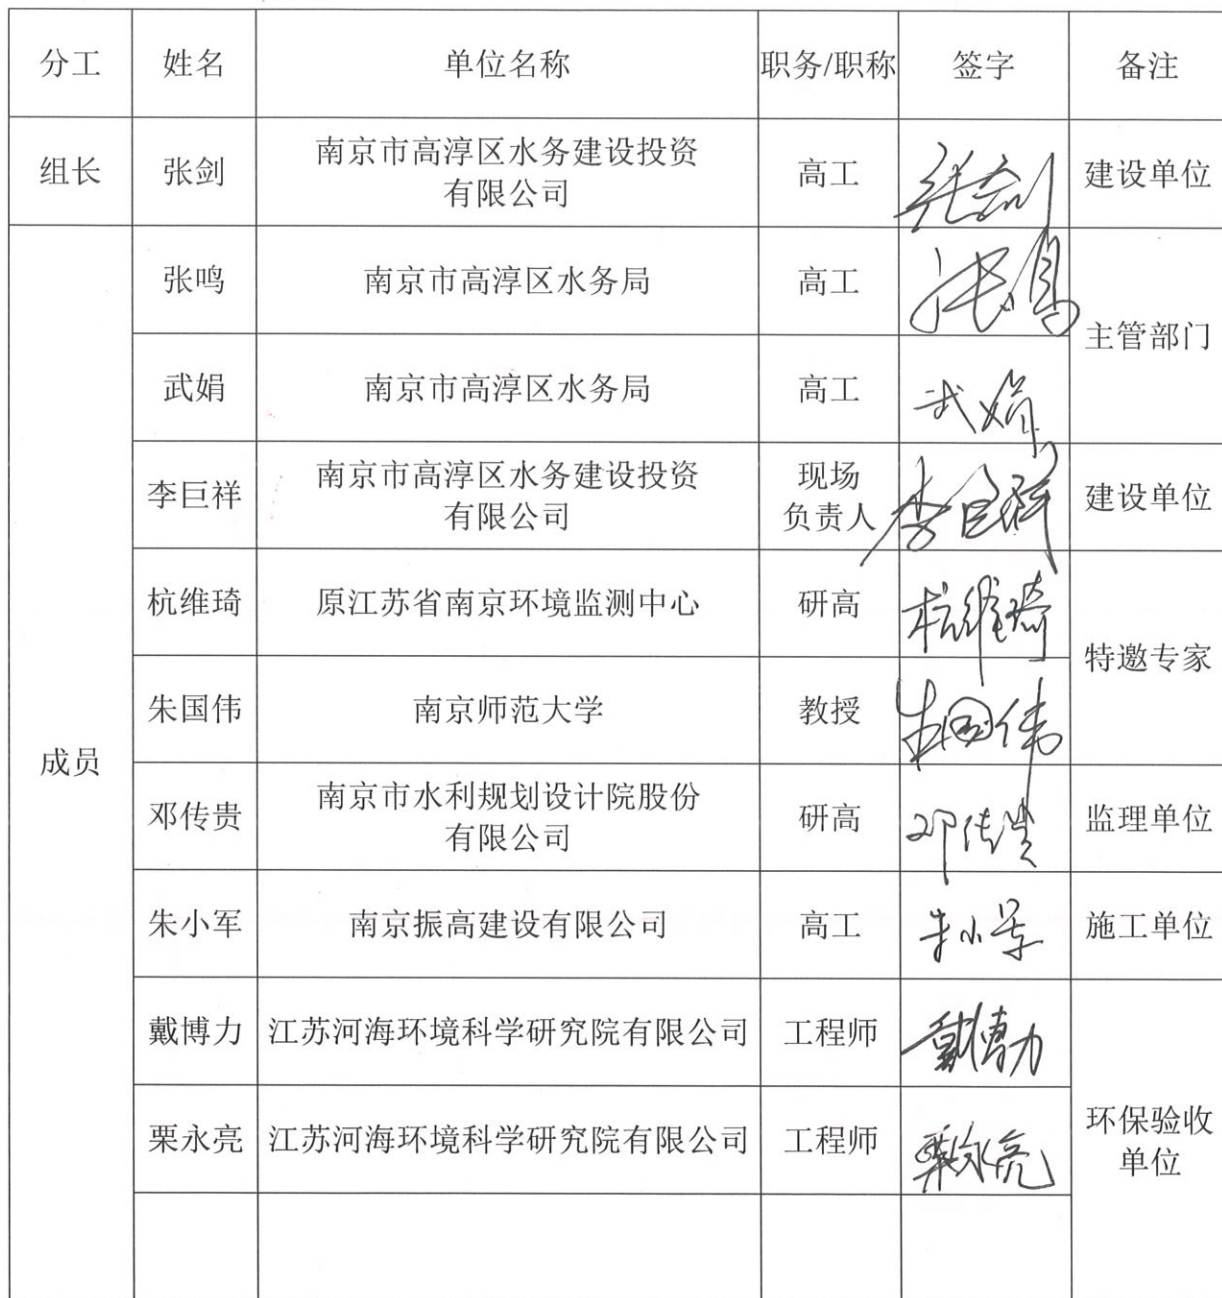 分工 姓名 单位名称 职务/职称 签字 备注
组长 张剑 南京市高淳区水务建设投资
有限公司 高工 张剑 建设单位
成员
张鸣 南京市高淳区水务局 高工 张鸣
主管部门
武娟 南京市高淳区水务局 高工 武娟
李巨祥 南京市高淳区水务建设投资
有限公司 现场
负责人 李巨祥 建设单位
杭维琦 原江苏省南京环境监测中心 研高 杭维琦
特邀专家
朱国伟 南京师范大学 教授 朱国伟
邓传贵 南京市水利规划设计院股份
有限公司 研高 邓传贵 监理单位
朱小军 南京振高建设有限公司 高工 朱小军 施工单位
戴博力 江苏河海环境科学研究院有限公司 工程师 戴博力
栗永亮 江苏河海环境科学研究院有限公司 工程师 栗永亮
环保验收
单位